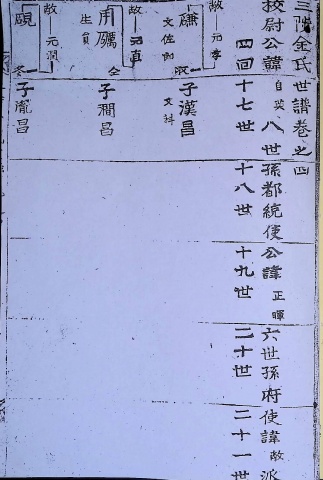 三陟金氏世譜卷之四
校尉公諱自英八世孫都統使公諱正暉六世孫府使諱敵派
四回十七世 十八世 十九世 二十世 二十一世
故元孝
子漢昌
文佐郎
文科
故元真
用礪
子澗昌
生員
故元潤
子胤昌